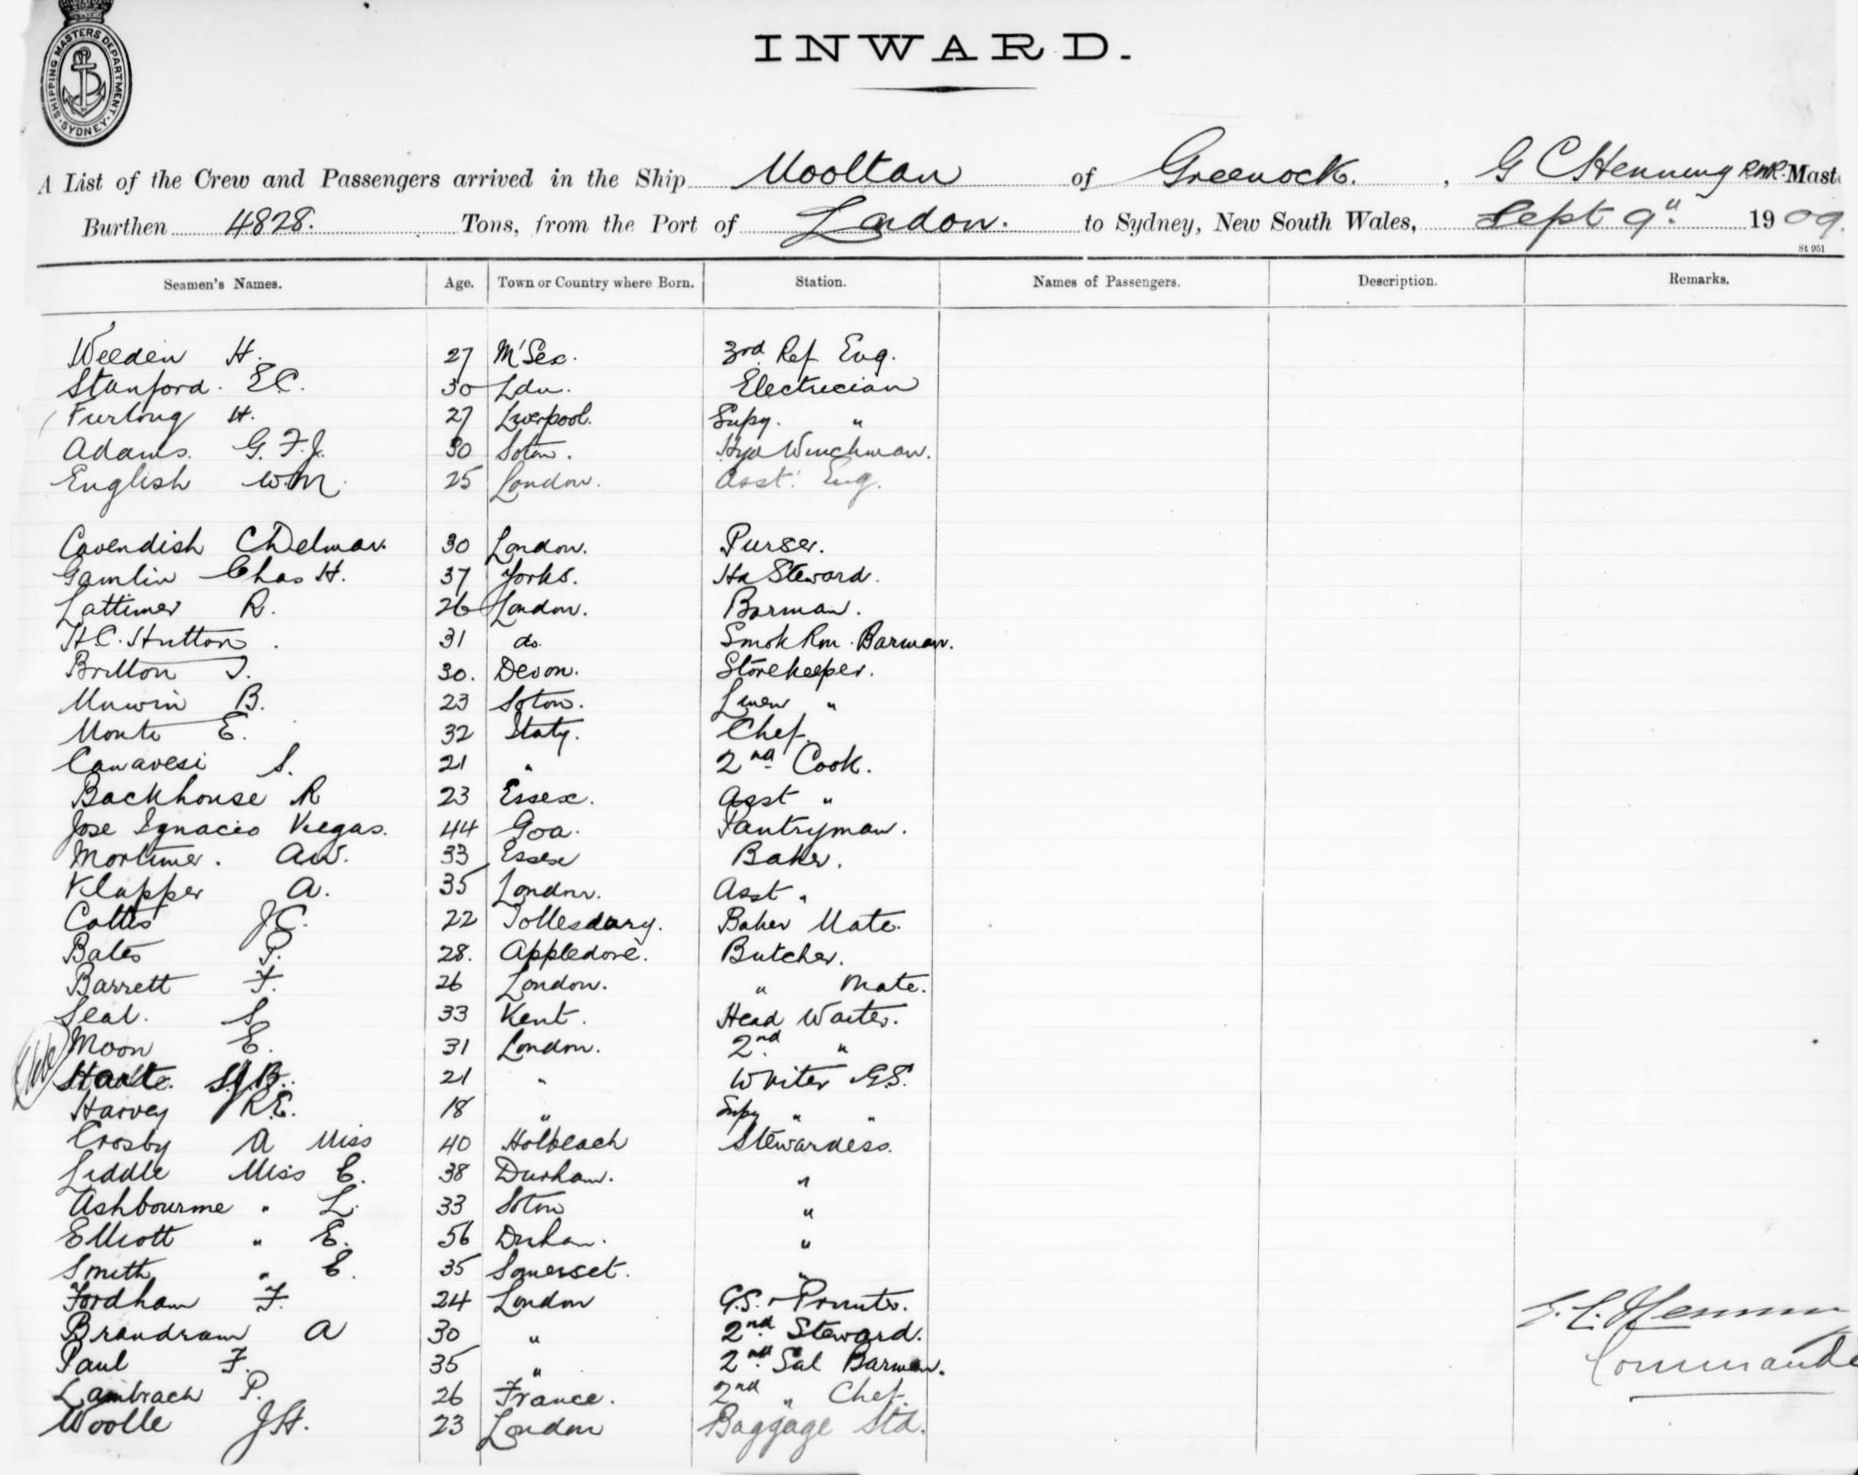 SHIPPING MASTERS DEPARTMENT. SYDNEY.
INWARD.
A List of the Crew and Passengers arrived in the Ship Mooltan of Greenock. , G C Henning RNR. Mast
Burthen 4828. Tons, from the Port of London. to Sydney, New South Wales, Sept 9" 1909.
St 951
Seamen's Names. Age. Town or Country where Born. Station. Names of Passengers. Description. Remarks.
Weeden H. 27 M'Sex. 3rd Ref Eng.
Stanford. E.C. 30 Ldn. Electrician
Furlong H. 27 Liverpool. Supy. "
Adams. G.F.J. 30 Soton. Hyd Winchman.
English W.M. 25 London. Asst. Eng.
Cavendish C Delmar. 30 London. Purser.
Gamlin Chas H. 37 Yorks. Hd Steward.
Lattimer R. 26 London. Barman.
H.C. Hutton. 31 do. Smok Rm. Barman.
Britton J. 30. Devon. Storekeeper.
Unwin B. 23 Soton. Linen "
Monte E. 32 Italy. Chef.
Canavesi S. 21 " 2nd Cook.
Backhouse R 23 Essex. Asst "
Jose Ignacio Viegas. 44 Goa. Pantryman.
Mortimer. A.W. 33 Essex Baker.
Klapper A. 35 London. Asst "
Cottis J.C. 22 Baker Mate.
Bates P. 28. Appledore. Butcher.
Barrett F. 26 London. " Mate.
Seal. S 33 Kent. Head Waiter.
Moon E. 31 London. 2nd "
S.J.B. 21 " Writer G.S.
Harvey R.E. 18 " Supy " "
Crosby A Miss 40 Holbeach Stewardess.
Liddle Miss E. 38 Durham. "
Ashbourne " L. 33 Soton "
Elliott " E. 56 Durham. "
Smith " E. 35 Somerset. "
Fordham F. 24 London G.S. Printer.
Brandram A 30 " 2nd Steward.
Paul F. 35 " 2nd Sal Barman.
Lambrach P. 26 France. 2nd " Chef.
Woolle J.H. 23 London Baggage Std.
G. C. Henning
Commande